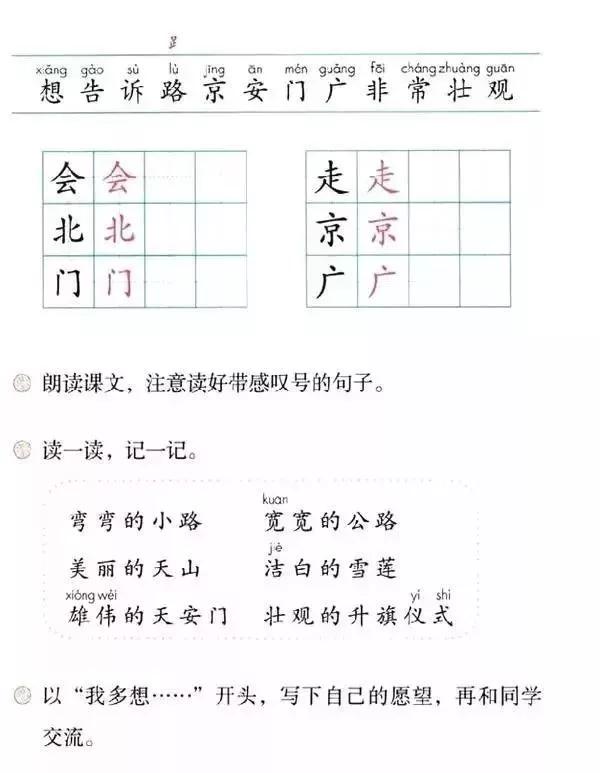 𧾷
xiǎng gào sù lù jīng ān mén guǎng fēi cháng zhuàng guān
想 告 诉 路 京 安 门 广 非 常 壮 观
会 会 走 走
北 北 京 京
门 门 广 广
朗读课文，注意读好带感叹号的句子。
读一读，记一记。
kuān
弯弯的小路 宽宽的公路
jié
美丽的天山 洁白的雪莲
xióng wěi yí shì
雄伟的天安门 壮观的升旗仪式
以“我多想……”开头，写下自己的愿望，再和同学
交流。